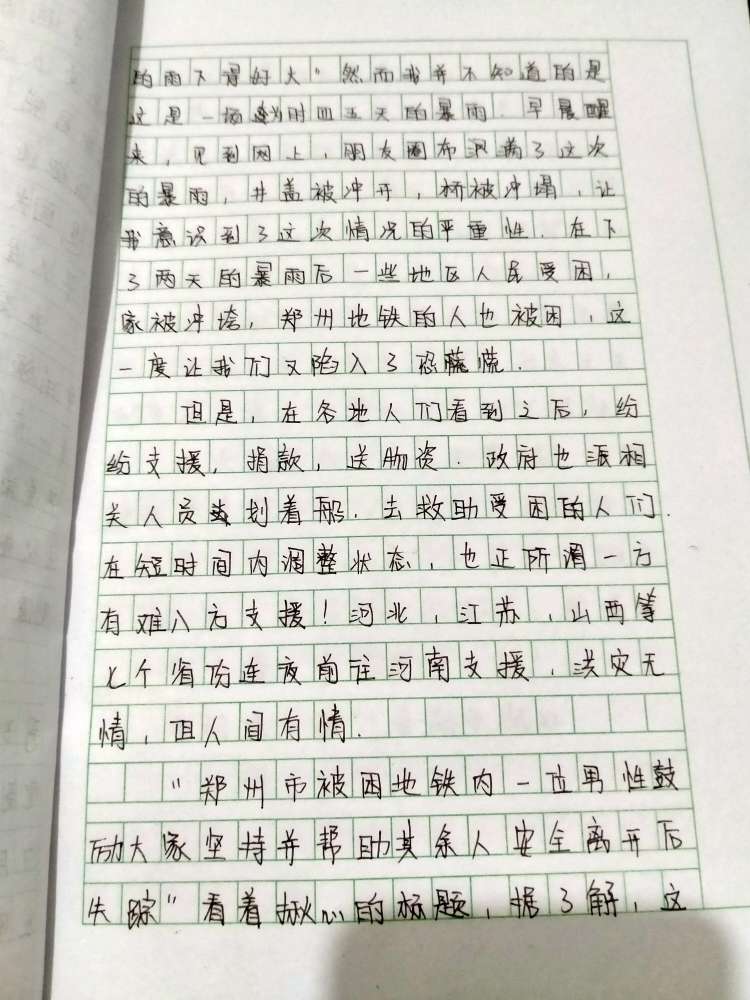 的雨下得好大"然而我并不知道的是
这是一场为时四五天的暴雨.早晨醒
来,见到网上,朋友圈布满了这次
的暴雨,井盖被冲开,桥被冲塌,让
我意识到了这次情况的严重性.在下
了两天的暴雨后一些地区人民受困,
家被冲垮,郑州地铁的人也被困,这
一度让我们又陷入了恐慌.
但是,在各地人们看到之后,纷
纷支援,捐款,送物资.政府也派相
关人员划着船.去救助受困的人们.
在短时间内调整状态,也正所谓一方
有难八方支援!河北,江苏,山西等
七个省份连夜前往河南支援,洪灾无
情,但人间有情.
"郑州市被困地铁内一位男性鼓
励大家坚持并帮助其余人安全离开后
失踪"看着揪心的标题,据了解,这